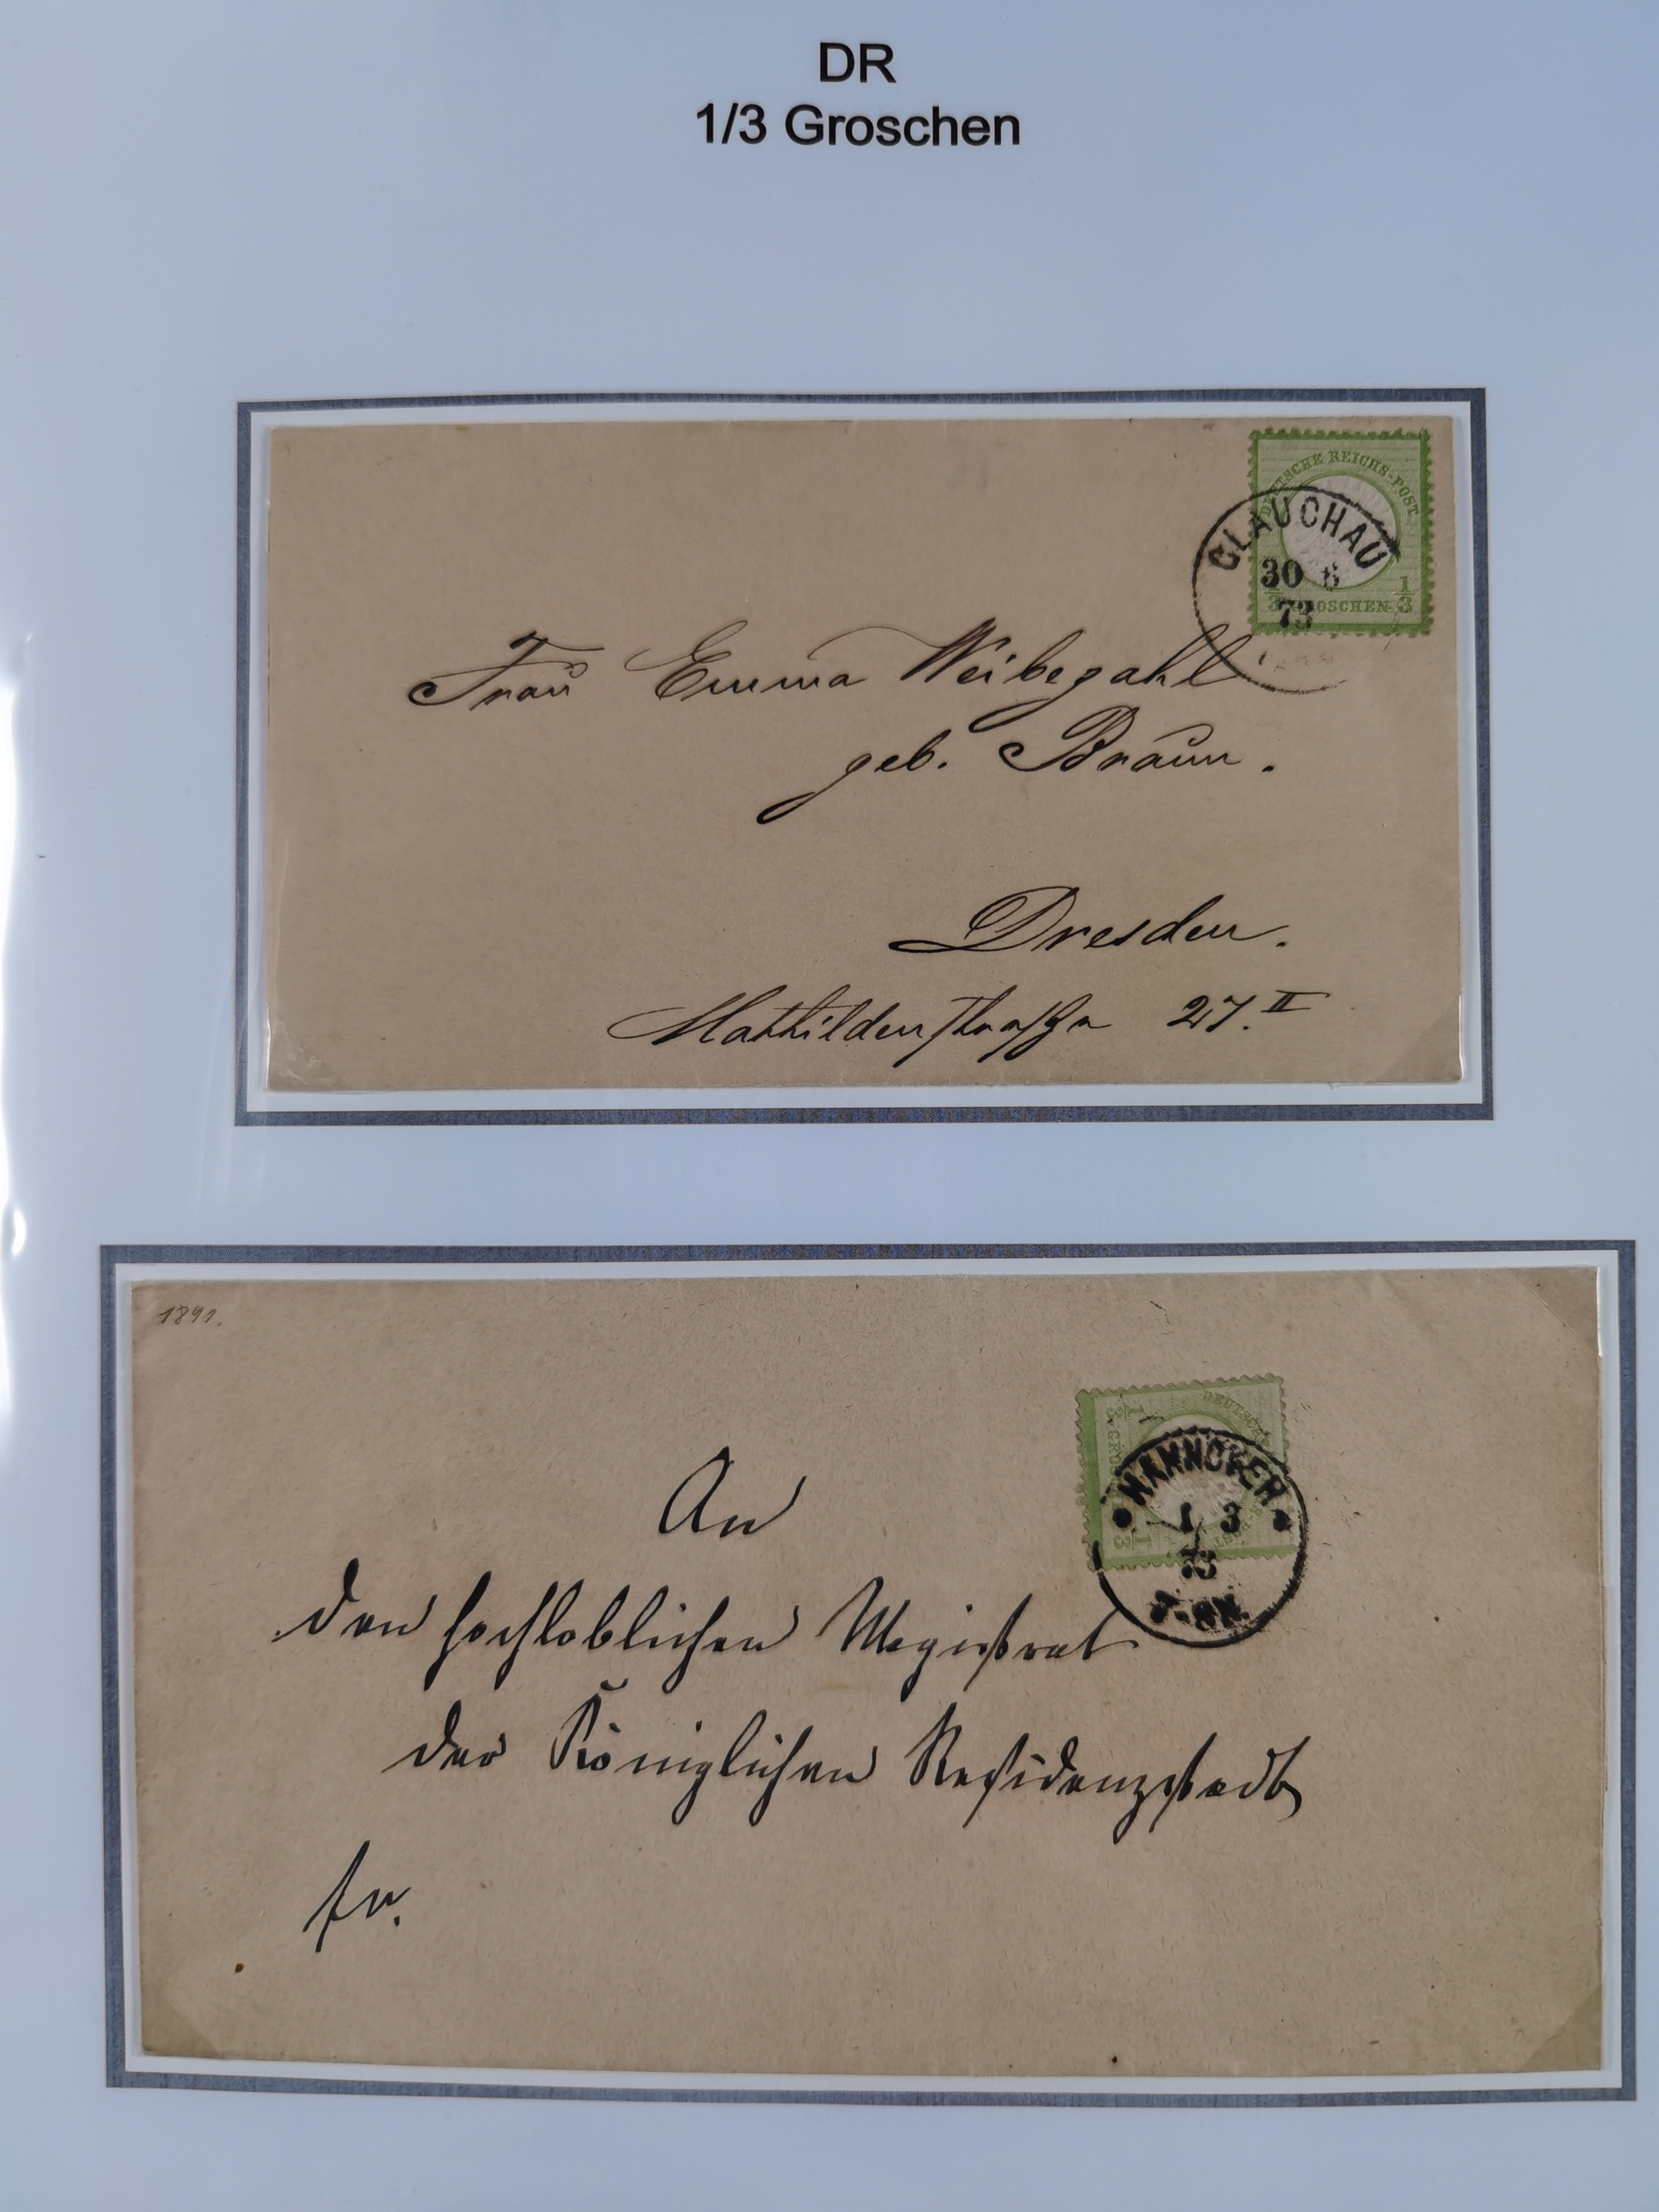 DR
1/3 Groschen
DEUTSCHE REICHS-POST
GLAUCHAU
30 6
73
1/3 GROSCHEN 1/3
Frau Emma Weibezahl
geb. Braun.
Dresden.
Mathildenstraße 27.II
1891.
HANNOVER
1 3
73
An
den hochloblichen Magistrat
der Königlichen Residenzstadt
fr.